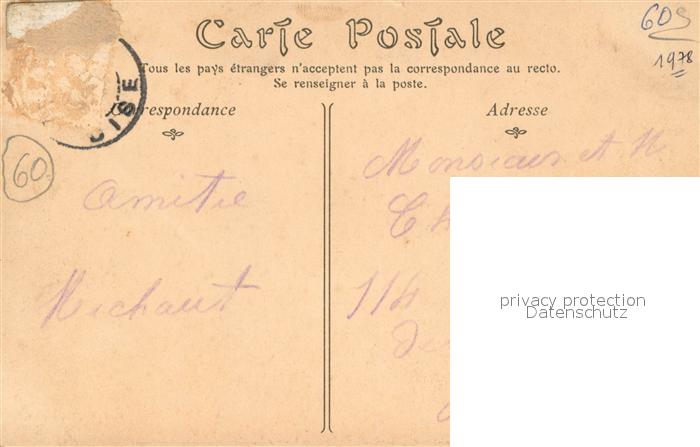 Carte Postale
Tous les pays étrangers n'acceptent pas la correspondance au recto.
Se renseigner à la poste.
Correspondance
Adresse
OISE
60
60S
1978
Amitié
Richaut
Monsieur et M
114
privacy protection
Datenschutz